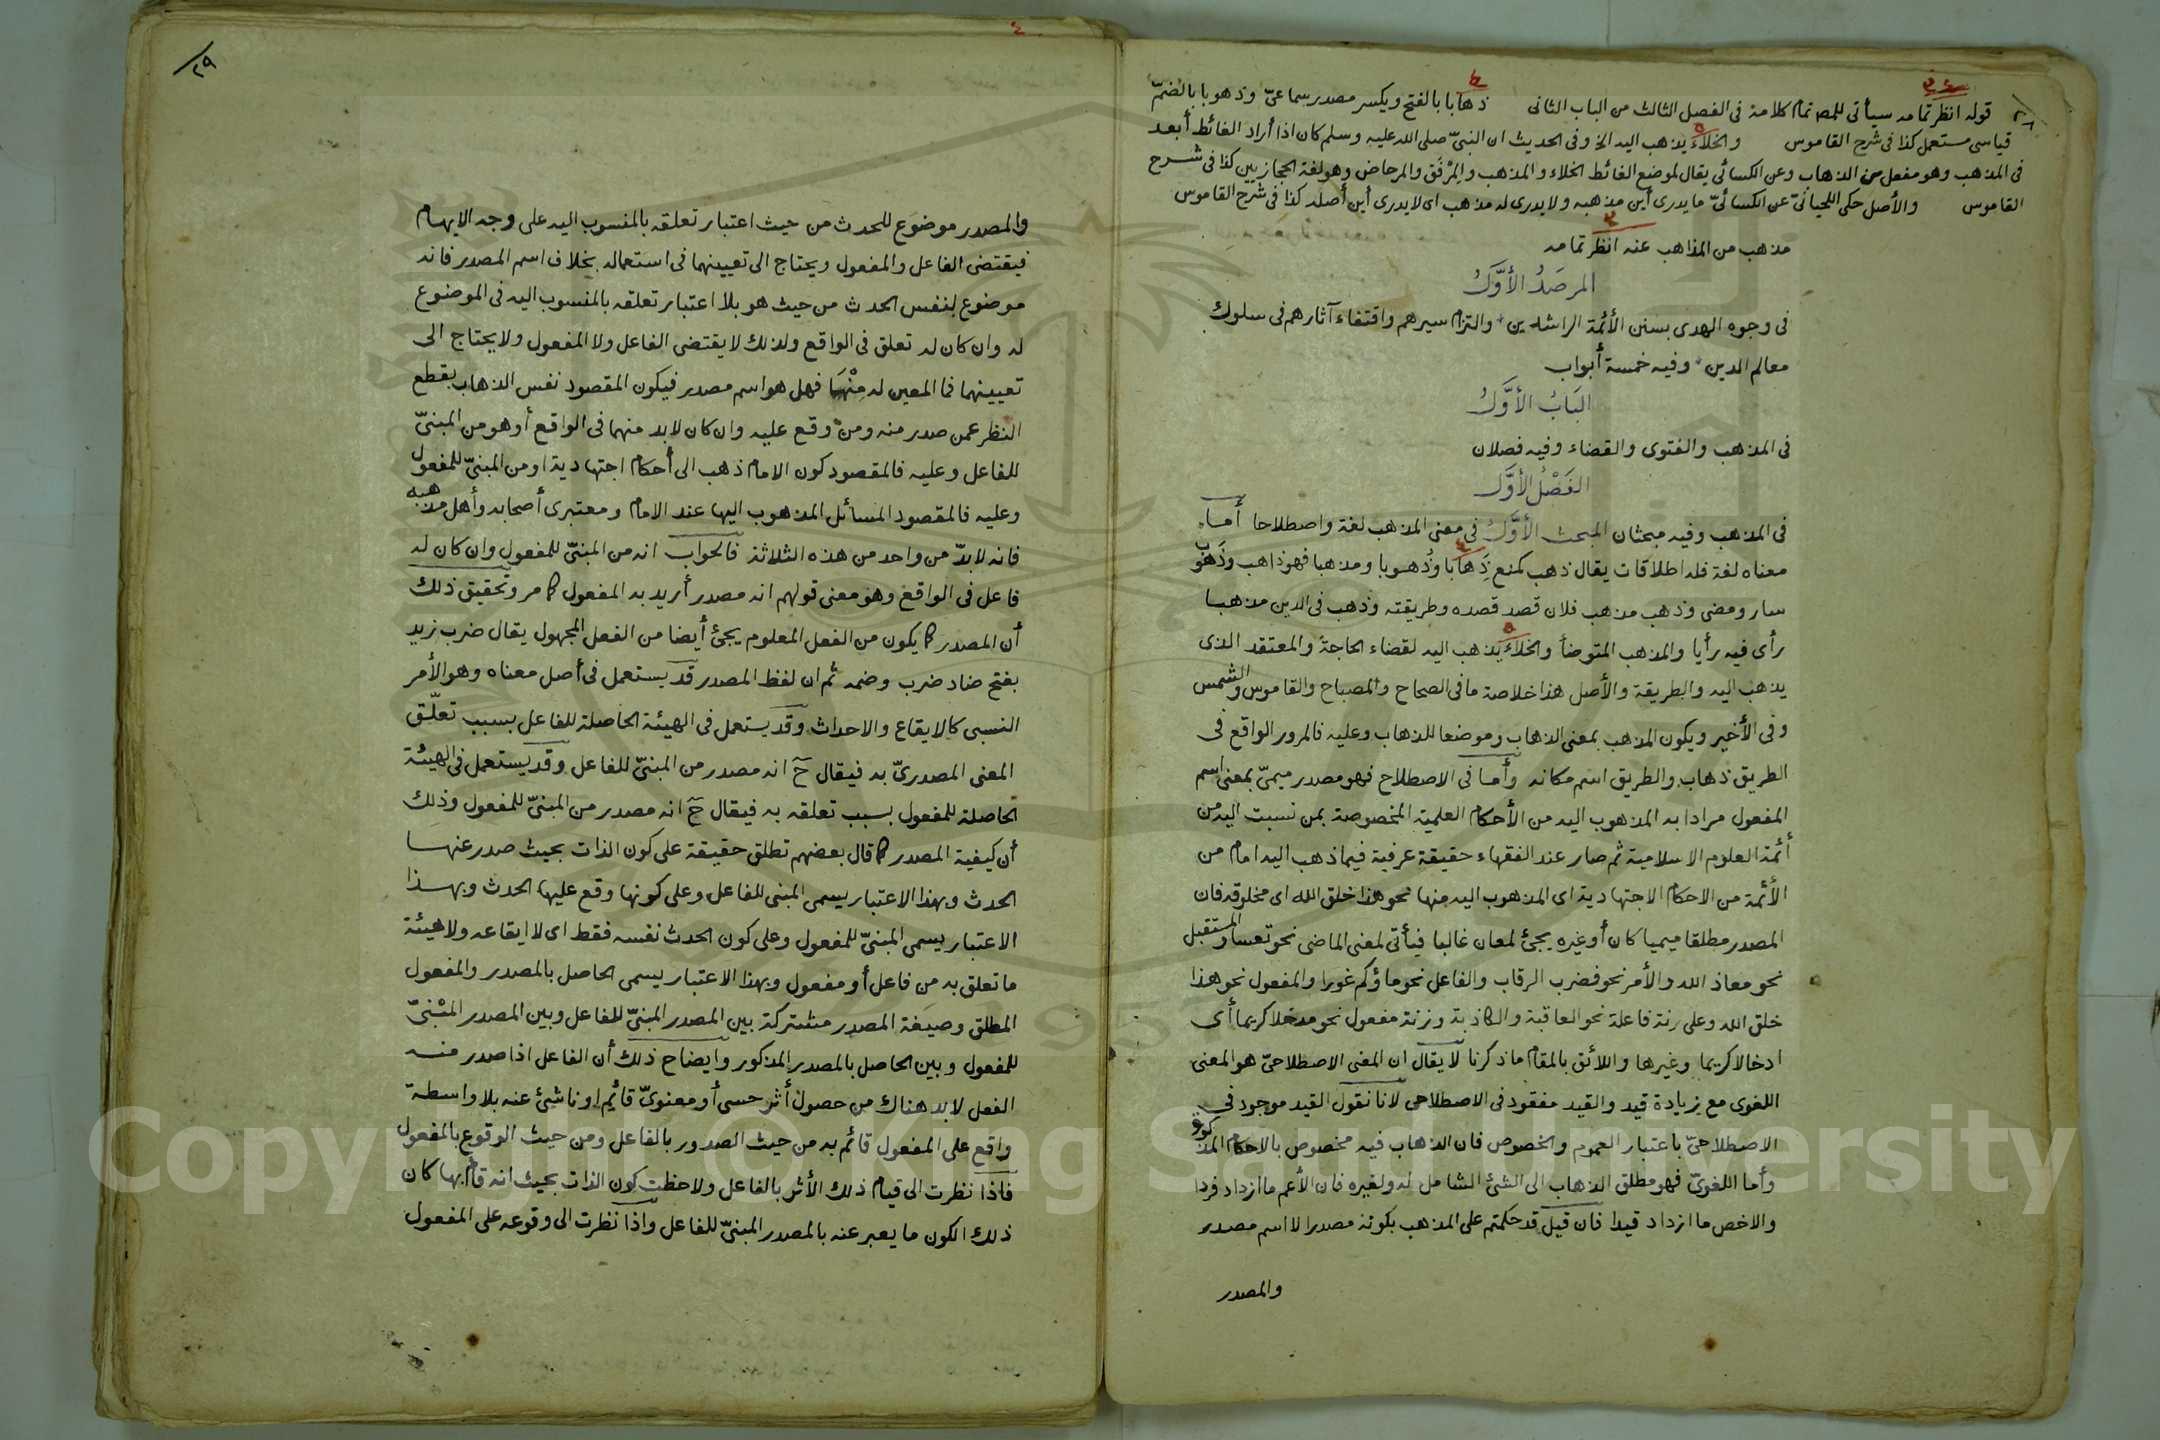 ٢٨
قوله انظر تمامه سيأتى للمص تمام كلامة فى الفصل الثالث من الباب الثانى ذهابا بالفتح ويكسر مصدر سماعىّ وذهوبا بالضمّ
قياسى مستعمل كذا فى شرح القاموس والخلاء يذهب اليه الخ وفى الحديث ان النبىّ صلى الله عليه وسلم كان اذا أراد الغائط أبعد
فى المذهب وهو مفعل من الذهاب وعن الكسائى يقال لموضع الغائط الخلاء والمذهب والمِرْفَق والمرحاض وهو لغة الحجازيين كذا فى شرح
القاموس والأصل حكى اللحيانىّ عن الكسائىّ ما يدرى أين مذهبه ولا يدرى له مذهب اى لا يدرى أين أصله كذا فى شرح القاموس
مذهب من المذاهب عنه انظر تمامه
المرصَدُ الأوَّلُ
فى وجوه الهدى بسنن الأئمة الراشدين والتزام سيرهم واقتفاء آثارهم فى سلوك
معالم الدين وفيه خمسة أبواب
البَابُ الأوَّلُ
فى المذهب والفتوى والقضاء وفيه فصلان
الفَصْلُ الأوَّل
فى المذهب وفيه مبحثان المبحث الأوَّل فى معنى المذهب لغة واصطلاحا أما
معناه لغة فله اطلاقات يقال ذهب كمنع ذهَابا وذُهوبا ومذهبا فهو ذاهب وذَهُوب
سار ومضى وذهب مذهب فلان قصد قصده وطريقته وذهب فى الدين مذهبا
رأى فيه رأيا والمذهب المتوضأ والخلاء يذهب اليه لقضاء الحاجة والمعتقد الذى
يذهب اليه والطريقة والأصل هذا خلاصة ما فى الصحاح والمصباح والقاموس والشمس
وفى الأخير ويكون المذهب بمعنى الذهاب وموضعا للذهاب وعليه فالمرور الواقع فى
الطريق ذهاب والطريق اسم مكانه وأما فى الاصطلاح فهو مصدر ميمىّ بمعنى اسم
المفعول مرادا به المذهوب اليه من الأحكام العلمية المخصوصة بمن نسبت اليه من
أئمة العلوم الاسلامية ثم صار عند الفقهاء حقيقة عرفية فيما ذهب اليه امام من
الأئمة من الاحكام الاجتهادية اى المذهوب اليه منها نحو هذا خلق الله اى مخلوقه فان
المصدر مطلقا ميميا كان أو غيره يجئ لمعان غالبا فيأتى لمعنى الماضى نحو تعسا والمستقبل
نحو معاذ الله والأمر نحو فضرب الرقاب والفاعل نحو ماؤكم غورا والمفعول نحو هذا
خلق الله وعلى زنة فاعلة نحو العاقبة والكاذبة وزنة مفعول نحو مدخلا كريما أى
ادخالا كريما وغيرها واللائق بالمقام ما ذكرنا لا يقال ان المعنى الاصطلاحىّ هو المعنى
اللغوى مع زيادة قيد والقيد مفقود فى الاصطلاحى لانا نقول القيد موجود فى
الاصطلاحىّ باعتبار العموم والخصوص فان الذهاب فيه مخصوص بالاحكام المذكورة
وأما اللغوىّ فهو مطلق الذهاب الى الشئ الشامل له ولغيره فان الأعم ما ازداد فردا
والاخص ما ازداد قيدا فان قيل قد حكمتم على المذهب بكونه مصدرا لا اسم مصدر
والمصدر
٢٩
والمصدر موضوع للحدث من حيث اعتبار تعلقه بالمنسوب اليه على وجه الابهام
فيقتضى الفاعل والمفعول ويحتاج الى تعيينهما فى استعماله بخلاف اسم المصدر فانه
موضوع لنفس الحدث من حيث هو بلا اعتبار تعلقه بالمنسوب اليه فى الموضوع
له وان كان له تعلق فى الواقع ولذلك لا يقتضى الفاعل ولا المفعول ولا يحتاج الى
تعيينهما فما المعين له مِنْهَما فهل هو اسم مصدر فيكون المقصود نفس الذهاب بقطع
النظر عمن صدر منه ومن وقع عليه وان كان لابد منهما فى الواقع أو هو من المبنىّ
للفاعل وعليه فالمقصود كون الامام ذهب الى أحكام اجتهادية او من المبنىّ للمفعول
وعليه فالمقصود المسائل المذهوب اليها عند الامام ومعتبرى أصحابه وأهل مذهبه
فانه لابدّ من واحد من هذه الثلاثة فالجواب انه من المبنىّ للمفعول وان كان له
فاعل فى الواقع وهو معنى قولهم انه مصدر أريد به المفعول كما مر وتحقيق ذلك
أن المصدر كما يكون من الفعل المعلوم يجئ أيضا من الفعل المجهول يقال ضرب زيد
بفتح ضاد ضرب وضمه ثم ان لفظ المصدر قد يستعمل فى أصل معناه وهو الأمر
النسبى كالايقاع والاحداث وقد يستعمل فى الهيئة الحاصلة للفاعل بسبب تعلّق
المعنى المصدرىّ به فيقال ح انه مصدر من المبنىّ للفاعل وقد يستعمل فى الهيئة
الحاصلة للمفعول بسبب تعلقه به فيقال ح انه مصدر من المبنىّ للمفعول وذلك
أن كيفية المصدر كما قال بعضهم تطلق حقيقة على كون الذات بحيث صدر عنها
الحدث وبهذا الاعتبار يسمى المبنى للفاعل وعلى كونها وقع عليها الحدث وبهذا
الاعتبار يسمى المبنىّ للمفعول وعلى كون الحدث نفسه فقط اى لا ايقاعه ولا هيئة
ما تعلق به من فاعل أو مفعول وبهذا الاعتبار يسمى الحاصل بالمصدر والمفعول
المطلق وصيغة المصدر مشتركة بين المصدر المبنىّ للفاعل وبين المصدر المبْنىّ
للمفعول وبين الحاصل بالمصدر المذكور وايضاح ذلك أن الفاعل اذا صدر منه
الفعل لابد هناك من حصول أثر حسى أو معنوىّ قائم او ناشئ عنه بلا واسطة
واقع على المفعول قائم به من حيث الصدور بالفاعل ومن حيث الوقوع بالمفعول
فاذا نظرت الى قيام ذلك الأثر بالفاعل ولاحظت كون الذات بحيث انه قام بها كان
ذلك الكون ما يعبر عنه بالمصدر المبنىّ للفاعل واذا نظرت الى وقوعه على المفعول
Copyright © King Saud University